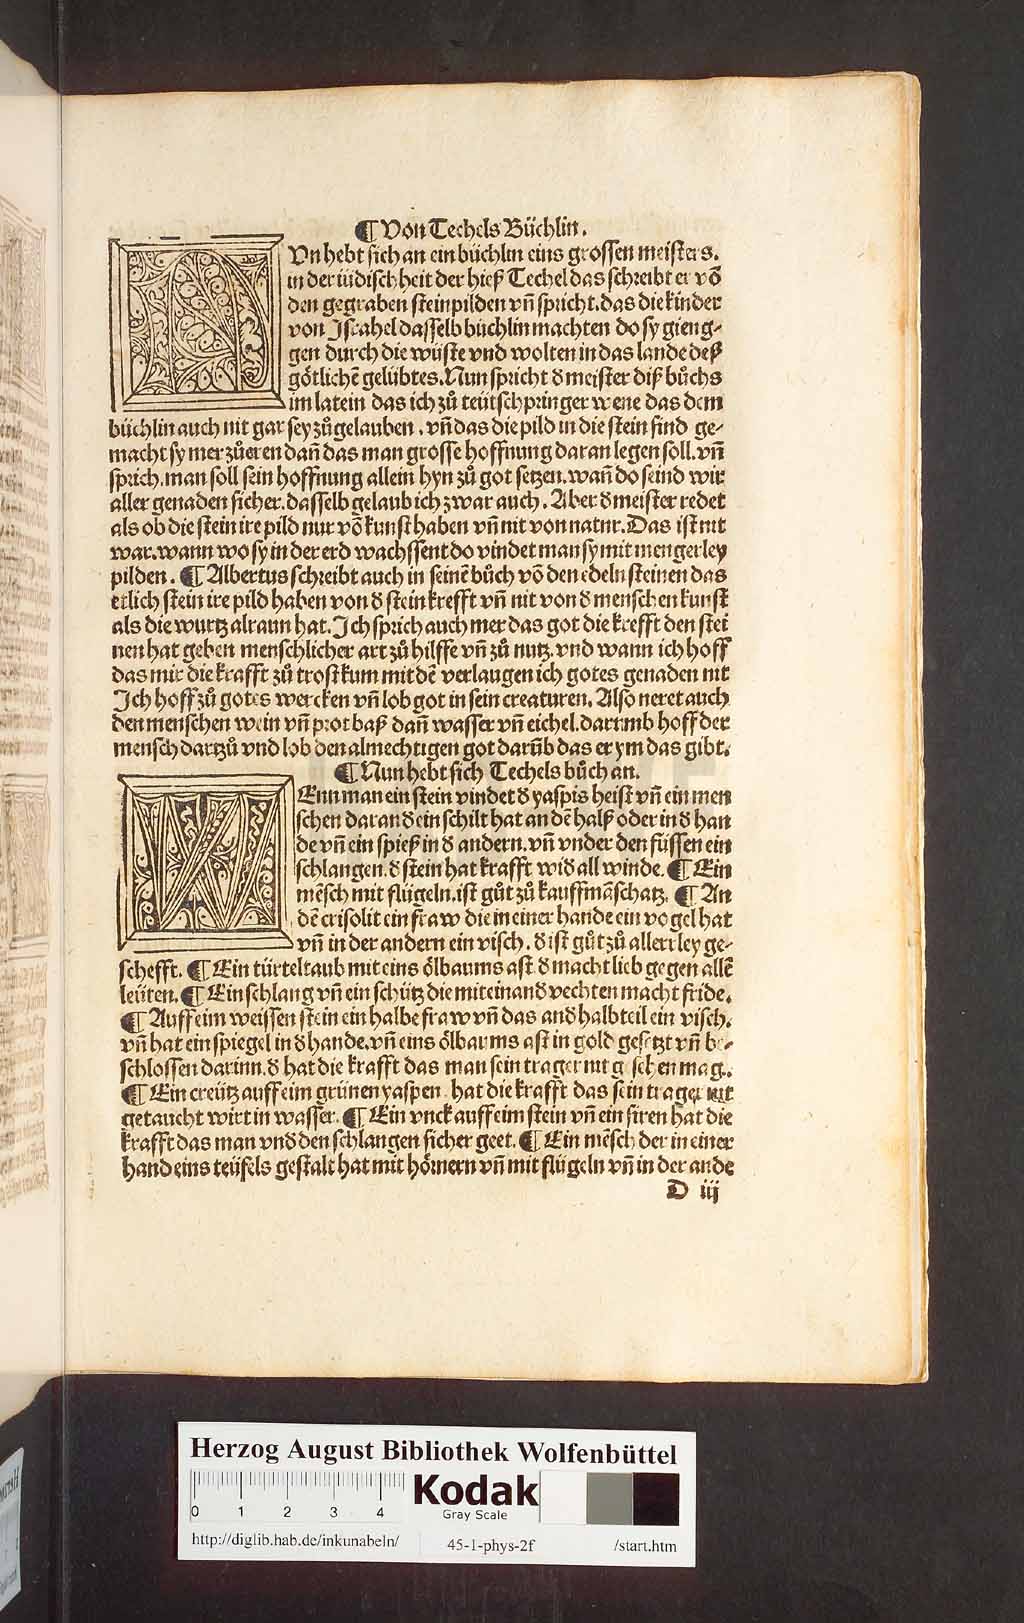 ¶ Von Techels Büchlin.
NUn hebt sich an ein büchlin eins grossen meisters.
in der iüdischheit der hieß Techel das schreibt er vō
den gegraben steinpilden vn̄ spricht. das die kinder
von Jsrahel dasselb büchlin machten do sy gieng⸗
gen durch die wüste vnd wolten in das lande deß
götlichē gelübtes. Nun spricht d meister diß bůchs
im latein das ich zů teütsch pringer wene das dem
büchlin auch nit gar sey zůgelauben. vn̄ das die pild in die stein sind ge⸗
macht sy mer zůeren dan̄ das man grosse hoffnung daran legen soll. vn̄
sprich. man soll sein hoffnung allein hyn zů got setzen. wan̄ do seind wir
aller genaden sicher. dasselb gelaub ich zwar auch. Aber d meister redet
als ob die stein ire pild nur vō kunst haben vn̄ nit von natur. Das ist nit
war. wann wo sy in der erd wachssent do vindet man sy mit mengerley
pilden. ¶ Albertus schreibt auch in seinē bůch vō den edeln steinen das
etlich stein ire pild haben von d stein krefft vn̄ nit von d menschen kunst
als die wurtz alraun hat. Jch sprich auch mer das got die krefft den stei
nen hat geben menschlicher art zů hilffe vn̄ zů nutz. vnd wann ich hoff
das mir die krafft zů trost kum mit dē verlaugen ich gotes genaden nit
Jch hoff zů gotes wercken vn̄ lob got in sein creaturen. Also neret auch
den menschen wein vn̄ prot baß dan̄ wasser vn̄ eichel. darumb hoff der
mensch dartzů vnd lob den almechtigen got darūb das er ym das gibt.
¶ Nun hebt sich Techels bůch an.
WEnn man ein stein vindet d yaspis heist vn̄ ein men
schen daran d ein schilt hat an dē halß oder in d han
de vn̄ ein spieß in d andern. vn̄ vnder den füssen ein
schlangen. d stein hat krafft wid all winde. ¶ Ein
mēsch mit flügeln. ist gůt zů kauffmāschatz. ¶ An
dē crisolit ein fraw die in einer hande ein vogel hat
vn̄ in der andern ein visch. d ist gůt zů allerrley ge⸗
schefft. ¶ Ein türteltaub mit eins ölbaums ast d macht lieb gegen allē
leüten. ¶ Ein schlang vn̄ ein schütz die miteinand vechten macht fride.
¶ Auff eim weissen stein ein halbe fraw vn̄ das and halbteil ein visch.
vn̄ hat ein spiegel in d hande. vn̄ eins ölbaums ast in gold gesetzt vn̄ be⸗
schlossen darinn. d hat die krafft das man sein trager nit gesehen mag.
¶ Ein creütz auff eim grünen yaspen hat die krafft das sein trager nit
getaucht wirt in wasser. ¶ Ein vnck auff eim stein vn̄ ein siren hat die
krafft das man vnd den schlangen sicher geet. ¶ Ein mēsch der in einer
hand eins teüfels gestalt hat mit hörnern vn̄ mit flügeln vn̄ in der ande
D iij
Herzog August Bibliothek Wolfenbüttel
0 1 2 3 4
Kodak
Gray Scale
http://diglib.hab.de/inkunabeln/ 45-1-phys-2f /start.htm